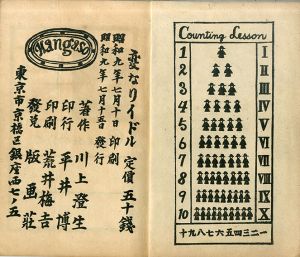 Hangaso
変なリイドル 定價五十錢
昭和九年七月十日 印刷
昭和九年七月十五日 發行
著作 川上澄生
印行 平井博
印刷 荒井梅吉
發兌 版画荘
東京市京橋区銀座西七ノ五
Counting Lesson
1 I
2 II
3 III
4 IV
5 V
6 VI
7 VII
8 VIII
9 IX
10 X
十九八七六五四三二一